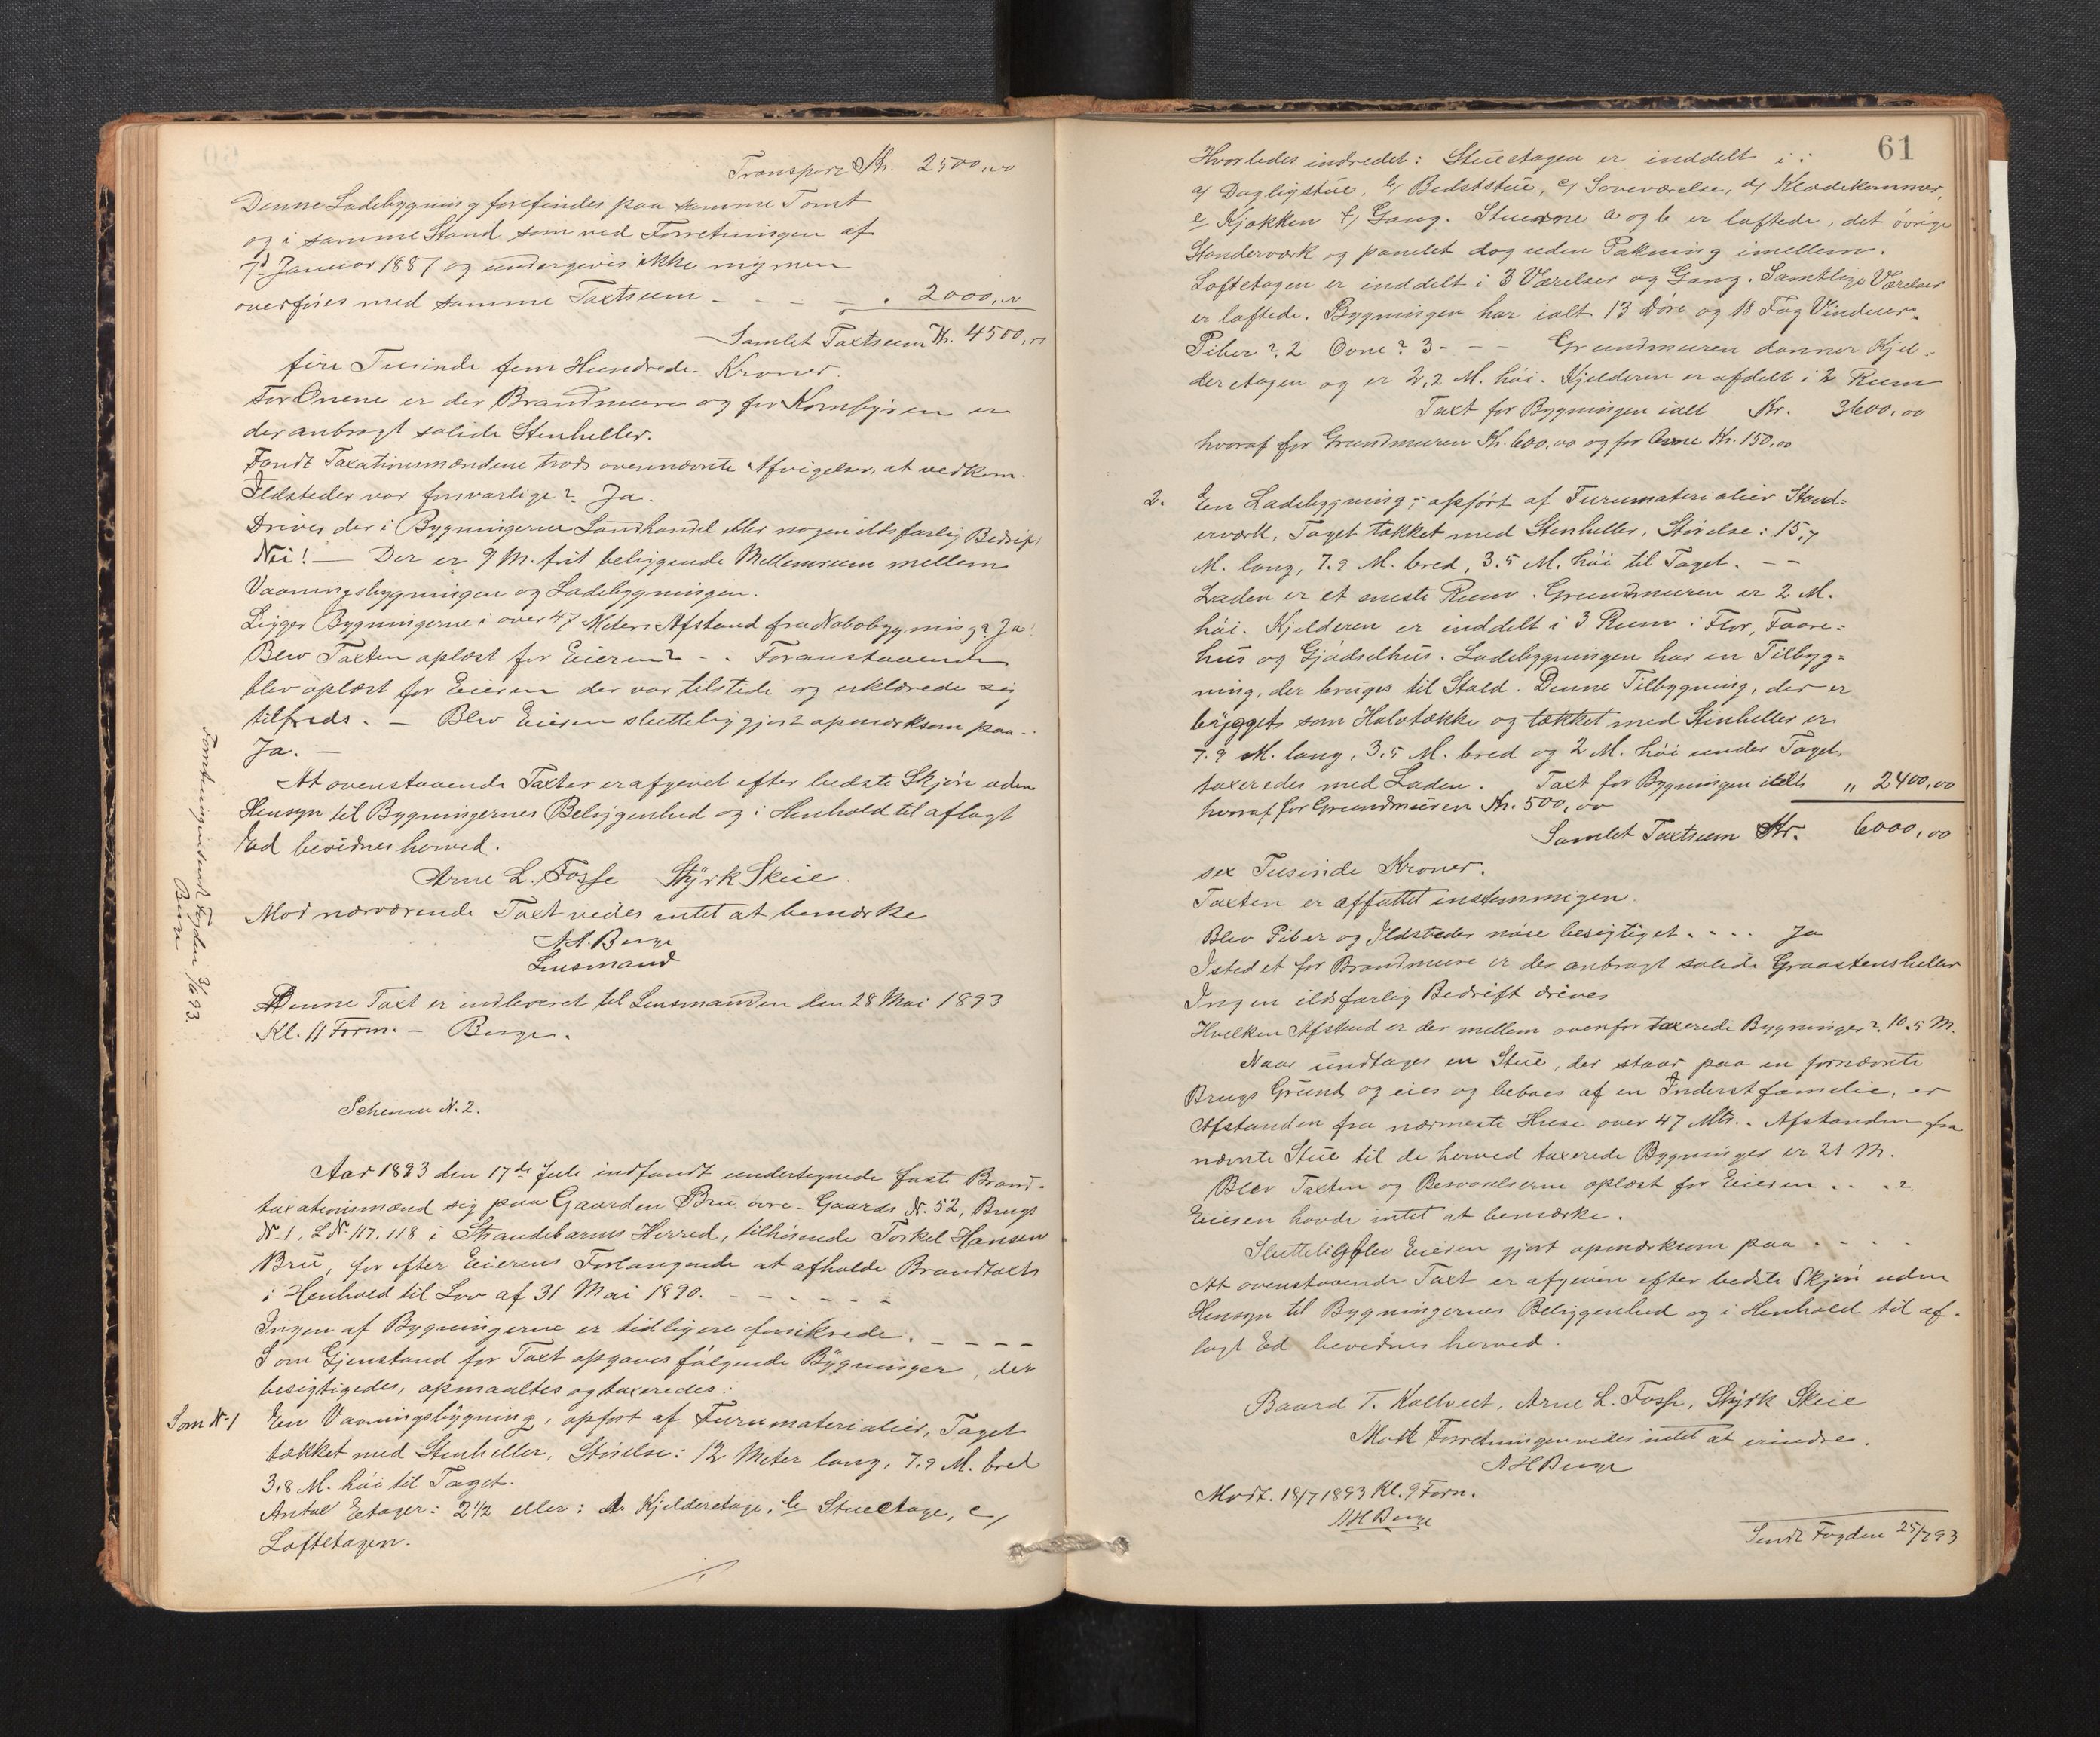 Transport Kr. 2500,00
Denne Ladebygning forefindes paa samme Tomt
og i samme Stand som ved Forretningen af
7d Januar 1887 og undergives ikke ny men
overføres med samme Taxtsum - - - - " 2000,00
Samlet Taxtsum Kr. 4500,00
fire Tusinde fem Hundrede Kroner.
For Ovnene er der Brandmure og for Kornbyren er
der anbragt solide Stenheller.
Fandt Taxationsmændene trods ovennævnte Afvigelser, at vedkom.
Ildsteder var forsvarlige? Ja.
Drives der i Bygningerne Landhandel eller nogen ildsfarlig Bedrift
Nei! — Der er 9 M. frit beliggende Mellemrum mellem
Vaaningsbygningen og Ladebygningen.
Ligger Bygningerne i over 47 Meters Afstand fra Nabobygning? Ja!
Blev Taxten oplæst for Eieren? - . Foranstaaende
blev oplæst for Eieren der var tilstede og erklærede sig
tilfreds. — Blev Eieren sluttelig gjort opmærksom paa ..
Ja. —
At ovenstaaende Taxter er afgivet efter bedste Skjøn uden
Hensyn til Bygningernes Beliggenhed og i Henhold til aflagt
Ed bevidnes herved.
Arne L. Fosse Styrk Skeie.
Mod nærværende Taxt vedes intet at bemærke
A H. Berge
Lensmand
Denne Taxt er indleveret til Lensmanden den 28 Mai 1893
Kl. 11 Form. — Berge.
Fogden 3/6 93.
Berge
Schema N. 2.
Aar 1893 den 17de Juli indfandt undertegnede faste Brand-
taxationsmænd sig paa Gaarden Bru øvre - Gaards N. 52, Brugs
N. 1, L.N. 117. 118 i Strandebarms Herred, tilhørende Torkel Hansen
Bru, for efter Eierens Forlangende at afholde Brandtaxt
i Henhold til Lov af 31 Mai 1890. - - - - - -
Ingen af Bygningerne er tidligere forsikrede. - - - -
Som Gjenstand for Taxt opgaves følgende Bygninger, der
besigtigedes, opmaaltes og taxeredes:
Som N. 1 En Vaaningsbygning, opført af Furumaterialier, Taget
tækket med Stenheller, Størelse: 12 Meter lang, 7.9 M. bred
3,8 M. høi til Taget.
Antal Etager: 2½ eller: a. Kjelderetage, b, Stueetage, c,
Loftetagen.
61
Hvorledes indredet: Stueetagen er inddelt i:
a, Dagligstue, b, Bedststue, c, Soveværelse, d, Klædekammer,
e, Kjøkken f, Gang. Stuerne a og b er laftede, det øvrige
Standerværk og panelet dog uden Pakning imellem.
Loftetagen er inddelt i 3 Værelser og Gang. Samtlige Værelser
er laftede. Bygningen har ialt 13 Døre og 18 Fag Vinduer.
Piber?. 2 Ovne? 3 - - - Grundmuren danner Kjel-
deretagen og er 2,2 M. høi. Kjelderen er afdelt i 2 Rum
Taxt for Bygningen ialt Kr. 3600,00
hvoraf for Grundmuren Kr. 600,00 og for Ovne Kr. 150,00
2. En Ladebygning, opført af Furumaterialier Stand-
erværk, Taget tækket med Stenheller, Størelse: 15,7
M. lang, 7.9 M. bred, 3.5 M. høi til Taget. - -
Laden er et eneste Rum. Grundmuren er 2 M.
høi. Kjelderen er inddelt i 3 Rum: Flor, Faare-
hus og Gjødselhus. Ladebygningen har en Tilbyg-
ning, der bruges til Stald. Denne Tilbygning, der er
bygget som Halvtække og tækket med Stenheller er
7.9 M. lang, 3.5 M. bred og 2 M. høi under Taget,
taxeredes med Laden. Taxt for Bygningen ialt " 2400,00
hvoraf for Grundmuren Kr. 500,00
Samlet Taxtsum Kr. 6000,00
sex Tusinde Kroner.
Taxten er affattet enstemmigen.
Blev Piber og Ildsteder nøie besigtiget. . . . Ja
Istedet for Brandmure er der anbragt solide Graastensheller
Ingen ildsfarlig Bedrift drives
Hvilken Afstand er der mellem ovenfor taxerede Bygninger?. 10.5 M.
Naar undtages en Stue, der staar paa en fornævnte
Brugs Grund og eies og beboes af en Inderstfamilie, er
Afstanden fra nærmeste Huse over 47 Mtr. Afstanden fra
nævnte Stue til de herved taxerede Bygninger er 21 M.
Blev Taxten og Besvarelserne oplæst for Eieren . . . ?
Eieren havde intet at bemærke.
Slutteligblev Eieren gjort opmærksom paa . - - -
At ovenstaaende Taxt er afgiven efter bedste Skjøn uden
Hensyn til Bygningernes Beliggenhed og i Henhold til af-
lagt Ed bevidnes herved.
Baard T. Kaltveit, Arne L. Fosse, Styrk Skeie
Mod Forretningen vedes intet at erindre.
A H Berge
Modt. 18/7 1893 Kl. 9 Form.
A H Berge
Sendt Fogden 25/7 93